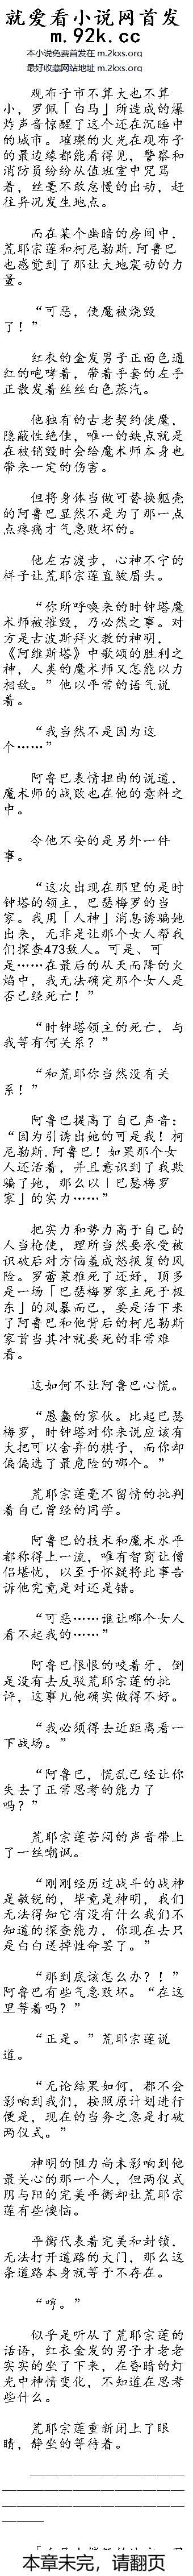 就爱看小说网首发
m.92k.cc
本小说免费首发在 m.2kxs.org
最好收藏网站地址 m.2kxs.org
观布子市不算大也不算
小，罗佩「白马」所造成的爆
炸声音惊醒了这个还在沉睡中
的城市。璀璨的火光在观布子
的最边缘都能看得见，警察和
消防员纷纷从值班室中咒骂
着，丝毫不敢怠慢的出动，赶
往异况发生地点。
而在某个幽暗的房间中，
荒耶宗莲和柯尼勒斯.阿鲁巴
也感觉到了那让大地震动的力
量。
“可恶，使魔被烧毁
了！”
红衣的金发男子正面色通
红的咆哮着，带着手套的左手
正散发着丝丝白色蒸汽。
他独有的古老契约使魔，
隐蔽性绝佳，唯一的缺点就是
在被销毁时会给魔术师本身也
带来一定的伤害。
但将身体当做可替换躯壳
的阿鲁巴显然不是为了那一点
点疼痛才气急败坏的。
他左右渡步，心神不宁的
样子让荒耶宗莲直皱眉头。
“你所呼唤来的时钟塔魔
术师被摧毁，乃必然之事。对
方是古波斯拜火教的神明，
《阿维斯塔》中歌颂的胜利之
神，人类的魔术师又怎能以力
相敌。”他以平常的语气说
着。
“我当然不是因为这
个……”
阿鲁巴表情扭曲的说道，
魔术师的战败也在他的意料之
中。
令他不安的是另外一件
事。
“这次出现在那里的是时
钟塔的领主，巴瑟梅罗的当
家。我用「人神」消息诱骗她
出来，无非是让那个女人帮我
们探查473敌人。可是、可
是……在最后的从天而降的火
焰中，我无法确定那个女人是
否已经死亡！”
“时钟塔领主的死亡，与
我等有何关系？”
“和荒耶你当然没有关
系！”
阿鲁巴提高了自己声音：
“因为引诱出她的可是我！柯
尼勒斯.阿鲁巴！如果那个女
人还活着，并且意识到了我欺
骗了她，那么以「巴瑟梅罗
家」的实力……”
把实力和势力高于自己的
人当枪使，理所当然要承受被
识破后对方恼羞成怒报复的风
险。罗蕾莱雅死了还好，顶多
是一场「巴瑟梅罗家主死于极
东」的风暴而已，要是活下来
了阿鲁巴和他背后的柯尼勒斯
家首当其冲就要死的非常难
看。
这如何不让阿鲁巴心慌。
“愚蠢的家伙。比起巴瑟
梅罗，时钟塔对你来说应该有
大把可以舍弃的棋子，而你却
偏偏选了最危险的哪个。”
荒耶宗莲毫不留情的批判
着自己曾经的同学。
阿鲁巴的技术和魔术水平
都称得上一流，唯有智商让僧
侣堪忧，以至于怀疑将此事告
诉他究竟是对还是错。
“可恶……谁让哪个女人
看不起我的……”
阿鲁巴恨恨的咬着牙，倒
是没有去反驳荒耶宗莲的批
评，这事儿他确实做得不好。
“我必须得去近距离看一
下战场。”
“阿鲁巴，慌乱已经让你
失去了正常思考的能力了
吗？”
荒耶宗莲苦闷的声音带上
了一丝嘲讽。
“刚刚经历过战斗的战神
是敏锐的，毕竟是神明，我们
无法得知它有没有什么我们不
知道的探查能力，你现在去只
是白白送掉性命罢了。”
“那到底该怎么办？！”
阿鲁巴有些气急败坏。“在这
里等着吗？”
“正是。”荒耶宗莲说
道。
“无论结果如何，都不会
影响到我们，按照原计划进行
便是，现在的当务之急是打破
两仪式。”
神明的阻力尚未影响到他
最关心的那一个人，但两仪式
阴与阳的完美平衡却让荒耶宗
莲有些懊恼。
平衡代表着完美和封锁，
无法打开道路的大门，那么这
条道路本身就等于不存在。
“哼。”
似乎是听从了荒耶宗莲的
话语，红衣金发的男子才老老
实实的坐了下来，在昏暗的灯
光中神情变化，不知道在思考
些什么。
荒耶宗莲重新闭上了眼
睛，静坐的等待着。
本章未完，请翻页